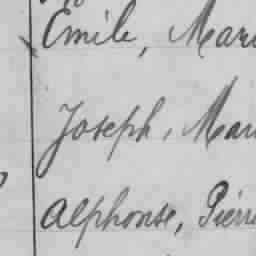 Emile, Mari
Joseph, Mari
Alphonse, Pierre